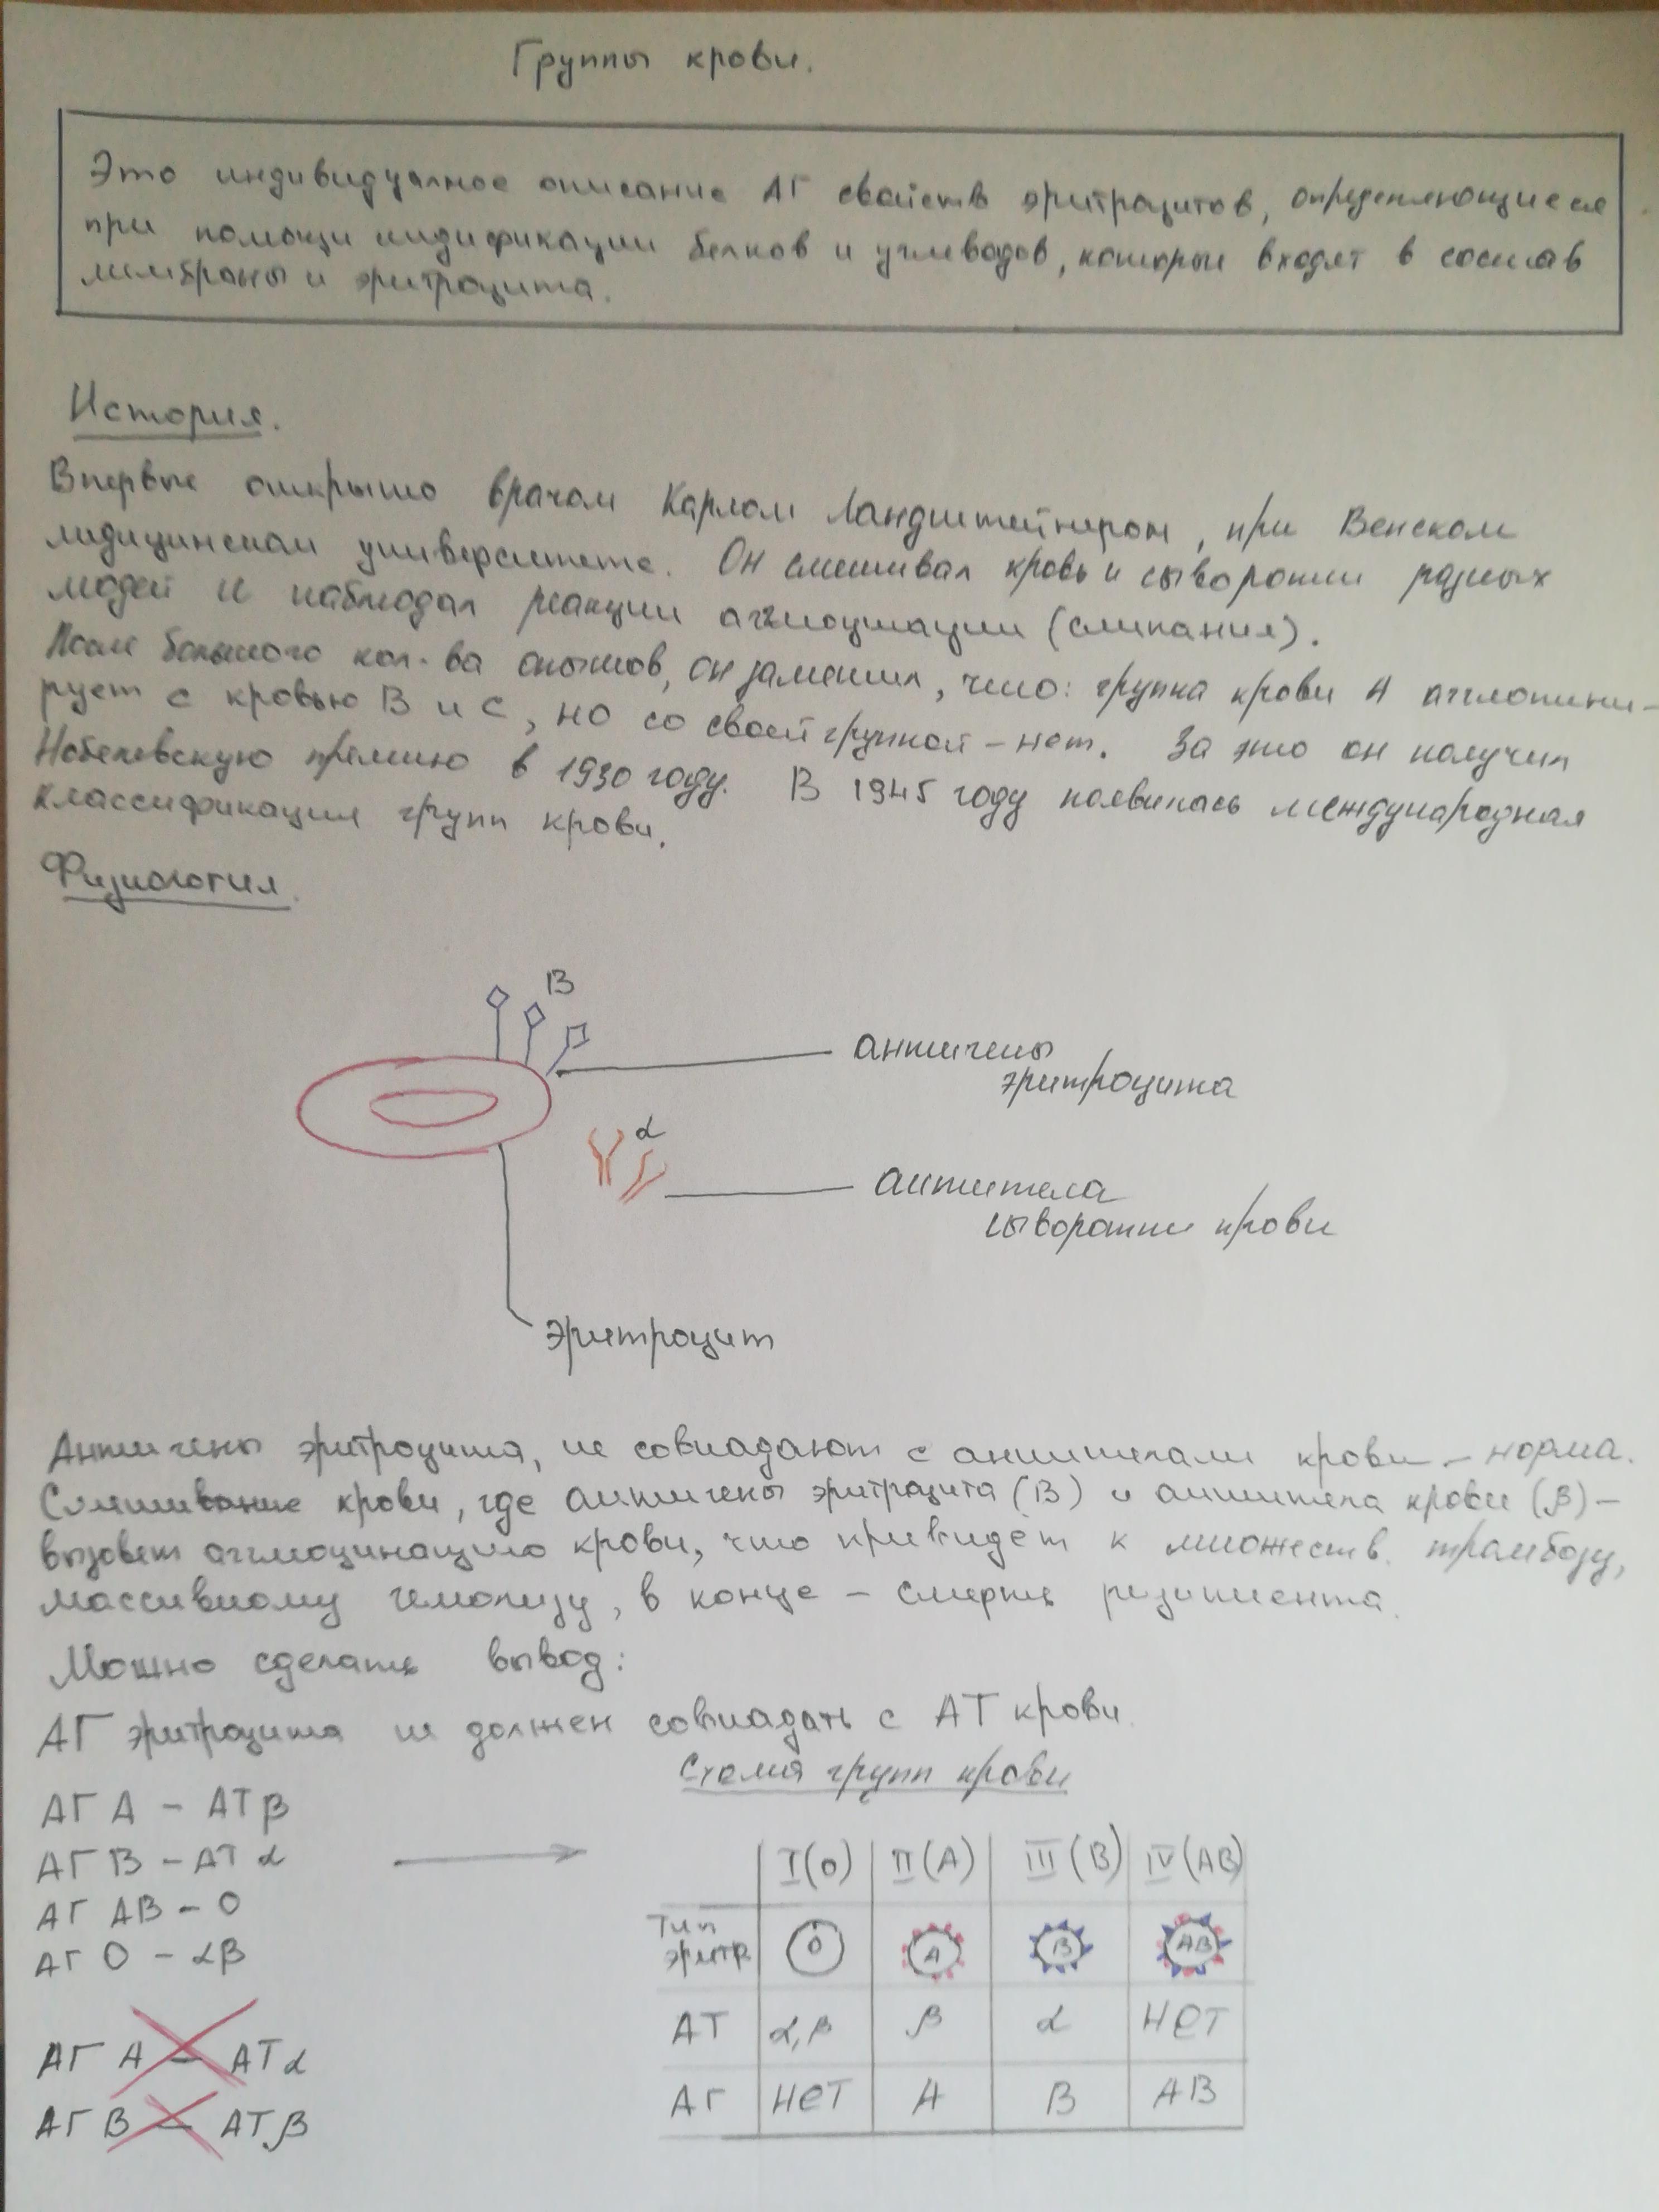 Группы крови.
Это индивидуалное описание АГ свойств эритроцитов, определяющиеся
при помощи индификации белков и углеводов, которые входят в состав
мембраны и эритроцита.
История.
Впервые открыто врачом Карлом Ландштейнером, при Венском
медицинском университете. Он смешивал кровь и сыворотки разных
людей и наблюдал реакции (слипания).
После большого кол-ва опытов, он заметил, что: группа крови А агглютини-
рует с кровью В и С, но со своей группой - нет. За это он получил
Нобелевскую премию в 1930 году. В 1945 году появилась международная
классификация групп крови.
Физиология.
В
антигены
эритроцита
α
антитела
сыворотки крови
эритроцит
Антигены эритроцита, не совпадают с антителами крови - норма.
Смешивание крови, где антигены эритроцита (В) и антитела крови (β) -
вызовет крови, что приведёт к множеств. тромбозу,
массивному гемолизу, в конце - смерть реципиента.
Можно сделать вывод:
АГ эритроцита не должен совпадать с АТ крови.
Схема групп крови
АГ А - АТ β
АГ В - АТ α
АГ АВ - О
АГ О - αβ
АГ А - АТ α
АГ В - АТ β
I (О) II (А) III (В) IV (АВ)
Тип
эритр. О А В АВ
АТ α, β β α НЕТ
АГ НЕТ А В АВ